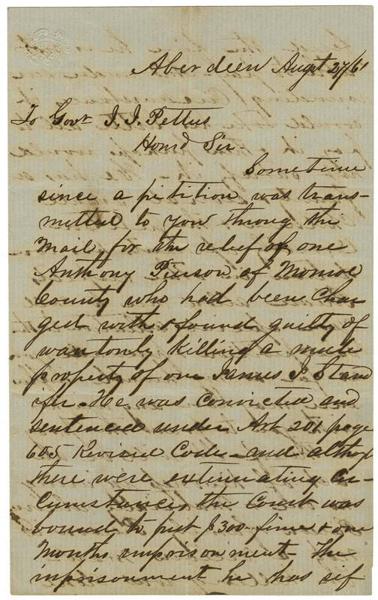 Aberdeen Augst 27/61
To Govr J. J. Pettus
Hond Sir
Sometime
since a petition was trans-
mitted to you throug the
Mail, for the relief of one
Anthony Pierson of Monroe
County who had been char
ged with & found guilty of
wantonly killing a mule
property of one James J. Stand
ifer. He was convicted and
sentenced under Art 201 page
605 Revised Code - and althog
there were extenuating Cir-
cumstances, the Court was
bound to put $300 fine & one
Months imprisonment - The
imprisonment he has suf